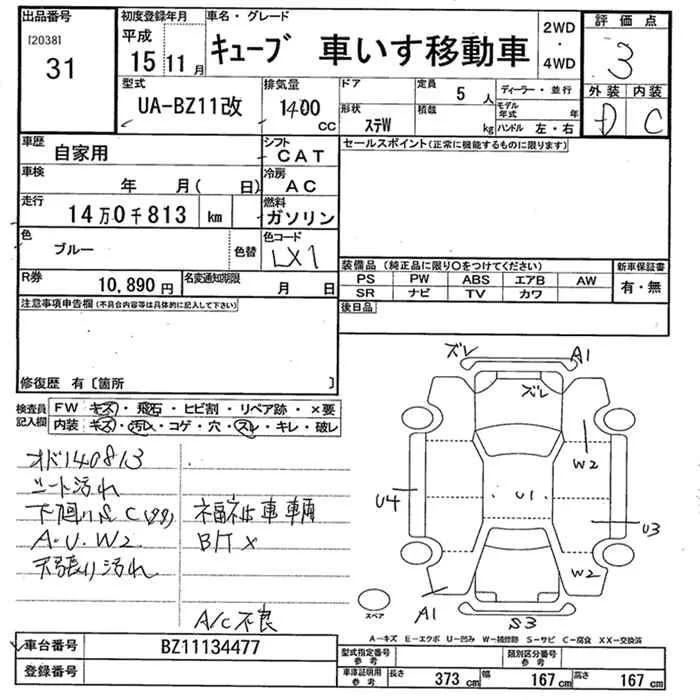 出品番号
[2038]
31
初度登録年月
平成
15 11月
車名・グレード
キューブ 車いす移動車
2WD
・
4WD
評価点
3
外装 内装
D C
型式
UA-BZ11改
排気量
1400
CC
ドア
形状
ステW
定員
5 人
積載
kg
ディーラー・並行
モデル年式 年
ハンドル 左・右
車歴
自家用
シフト
CAT
車検
年 月( 日)
冷房
AC
走行
14万0千813 km
燃料
ガソリン
色
ブルー
色替
色コード
LX1
R券
10,890円
名変通知期限
月 日
セールスポイント(正常に機能するものに限ります)
装備品(純正品に限り○をつけてください)
PS PW ABS エアB AW
SR ナビ TV カワ
新車保証書
有・無
後日品
注意事項申告欄(不具合内容等は具体的に記入して下さい)
修復歴 有〔箇所 〕
検査員記入欄
FW キズ・飛石・ヒビ割・リペア跡・×要
内装 キズ・汚れ・コゲ・穴・スレ・キレ・破レ
オド140813
シート汚れ
下廻りS C
A・U・W2
天張り汚れ
福祉車輌
A/C不良
ズレ
A1
ズレ
W2
U4
U1
U3
W2
A1
S3
スペア
A－キズ E－エクボ U－凹み W－補修跡 S－サビ C－腐食 XX－交換済
車台番号
BZ11134477
登録番号
型式指定番号
参考
類別区分番号
参考
車庫証明用
参考
長さ 373 cm 幅 167 cm 高さ 167 cm